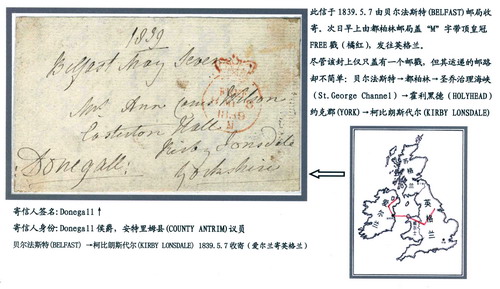 1839
Belfast May Seven
Mrs Ann
Casterton Hall
Kirby Lonsdale
Donegall.
Yorkshire
1839
此信于1839.5.7由贝尔法斯特(BELFAST)邮局收
寄。次日早上由都柏林邮局盖“M”字带顶皇冠
FREE戳(橘红),发往英格兰。
尽管该封上仅只盖有一个邮戳,但其递送的邮路
却不简单:贝尔法斯特→都柏林→圣乔治理海峡
(St.George Channel)→霍利黑德(HOLYHEAD)
约克郡(YORK)→柯比朗斯代尔(KIRBY LONSDALE)
寄信人签名:Donegall↑
寄信人身份:Donegall侯爵,安特里姆县(COUNTY ANTRIM)议员
贝尔法斯特(BELFAST)→柯比朗斯代尔(KIRBY LONSDALE) 1839.5.7收寄(爱尔兰寄英格兰)
英格兰